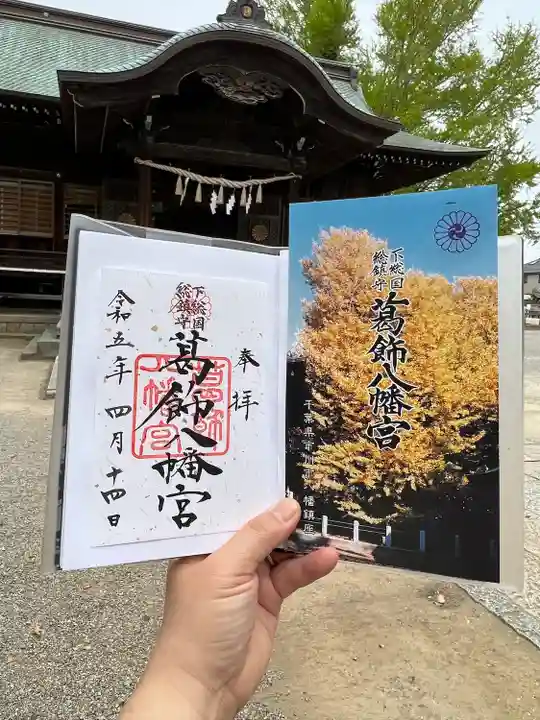 奉拝
下総国
総鎮守
葛飾八幡宮
葛飾
八幡宮
令和五年 四月十四日
下総国
総鎮守
葛飾八幡宮
千葉県市川市八幡鎮座